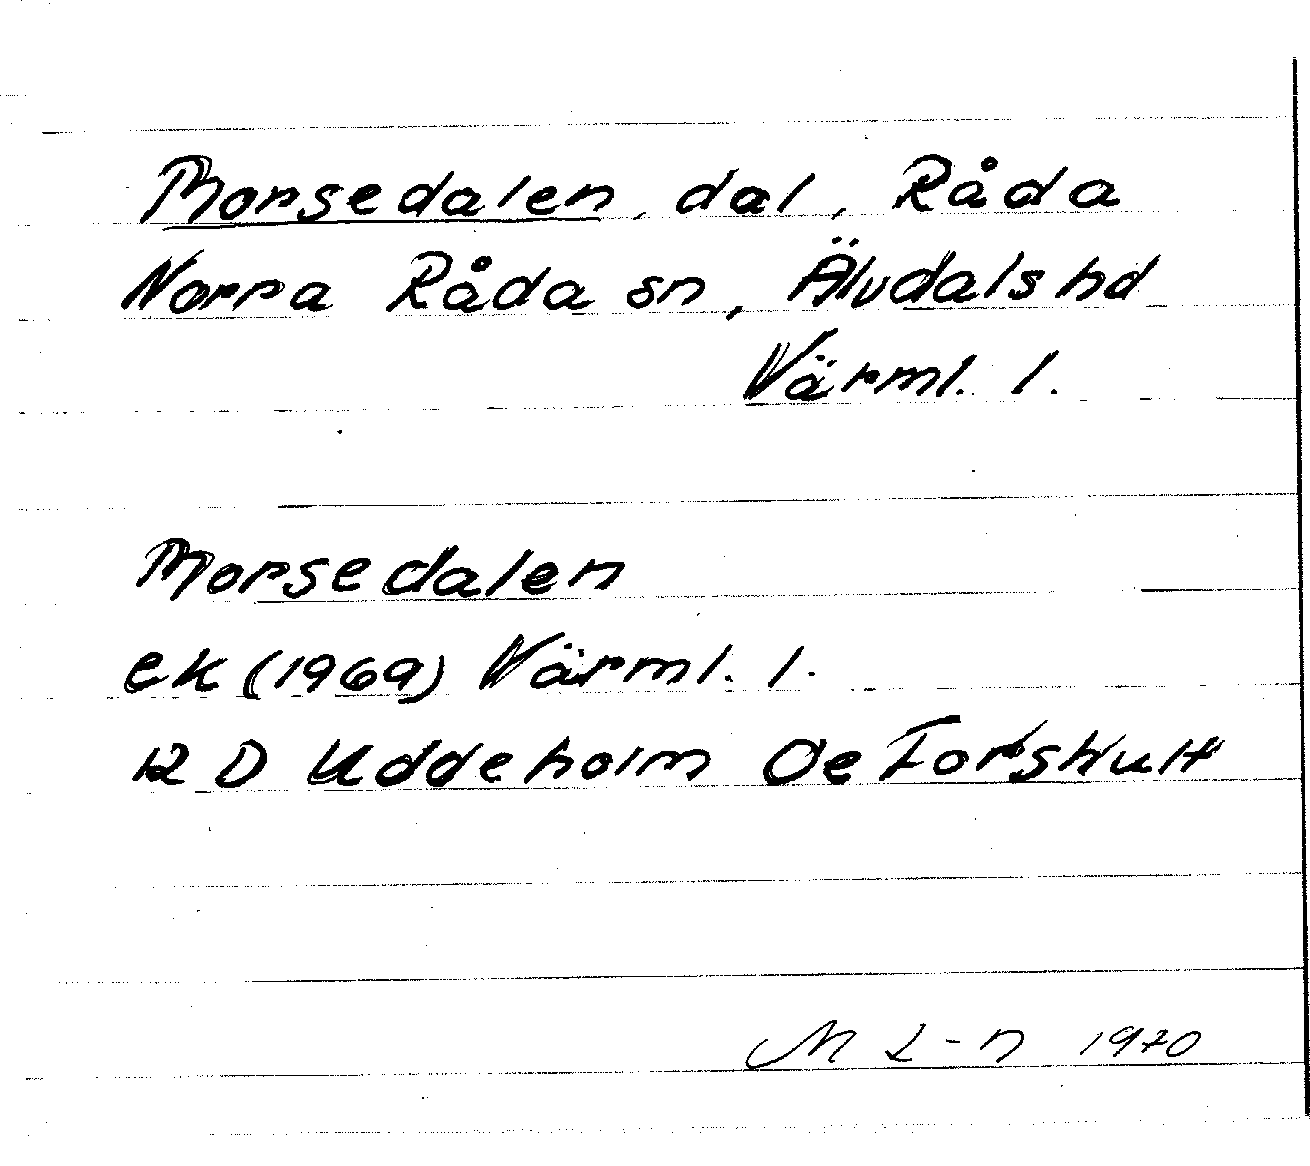 Morsedalen, dal, Råda
Norra Råda sn, Älvdals hd
Värml. l.
Morsedalen
ek (1969) Värml. l.
12 D Uddeholm Oe Forshult
M L-n 1970